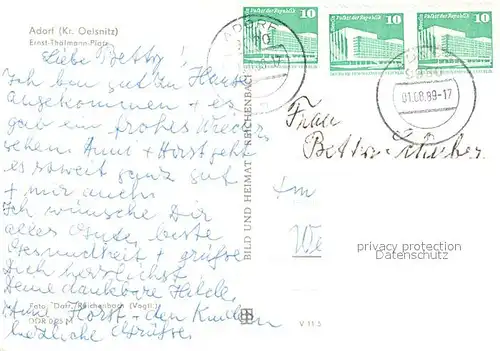 Adorf (Kr. Oelsnitz)
Ernst-Thälmann-Platz
Liebe Betty!
Ich bin gut zu Hause
angekommen + es
gab ein frohes Wieder
sehen Anni + Horst geht
es soweit ganz gut
+ mir auch.
Ich wünsche Dir
alles Gute, beste
Gesundheit + grüße
Dich herzlichst
Deine dankbare Hilde.
Horst + den Kindern
herzliche Grüße.
Foto: Reichenbach (Vogtl.)
DDR
BILD UND HEIMAT REICHENBACH
Palast der Republik
10
Palast der Republik
10
Palast der Republik
10
ADORF
9930
ADORF
9930
01.08.89-17
Frau
privacy protection
V 11 5